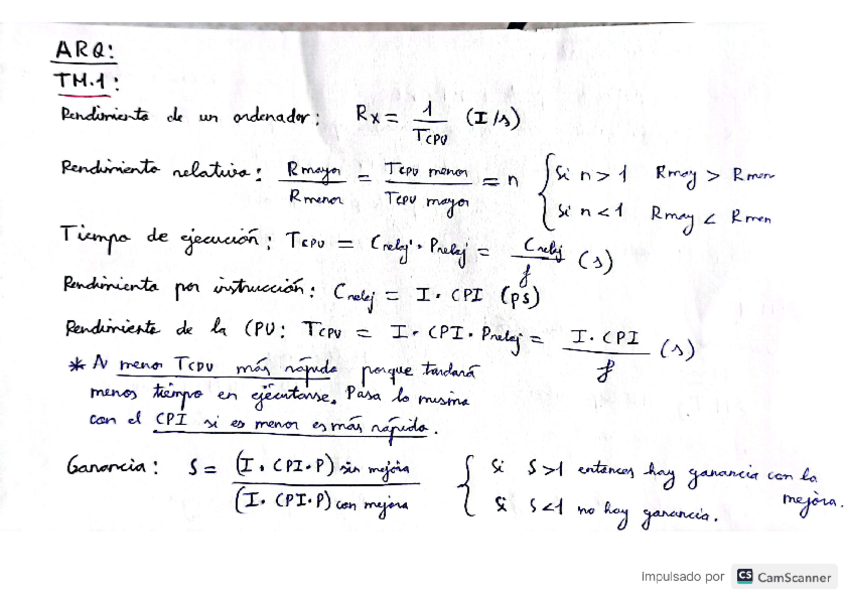 ARQ:
TM.1:
Rendimiento de un ordenador: Rx = 1 / TCPU (I/s)
Rendimiento relativo: Rmayor / Rmenor = TCPU menor / TCPU mayor = n { Si n > 1 Rmay > Rmen
Si n < 1 Rmay < Rmen
Tiempo de ejecución: TCPU = Creloj · Preloj = Creloj / f (s)
Rendimiento por instrucción: Creloj = I · CPI (ps)
Rendimiento de la CPU: TCPU = I · CPI · Preloj = I · CPI / f (s)
* A menor TCPU más rápido porque tardará
menos tiempo en ejecutarse. Pasa lo mismo
con el CPI si es menor es más rápido.
Ganancia: S = (I · CPI · P) sin mejora / (I · CPI · P) con mejora { Si S>1 entonces hay ganancia con la mejora.
Si S<1 no hay ganancia.
Impulsado por CS CamScanner